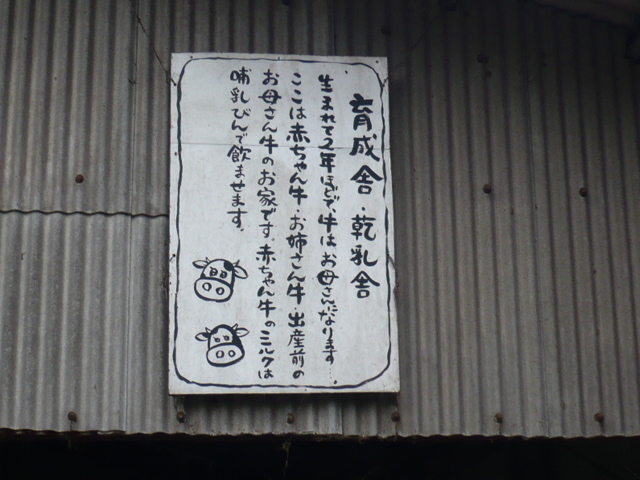 育成舎・乾乳舎
生まれて2年ほどで、牛はお母さんになります…。
ここは赤ちゃん牛・お姉さん牛・出産前の
お母さん牛のお家です。赤ちゃん牛のミルクは
哺乳びんで飲ませます。